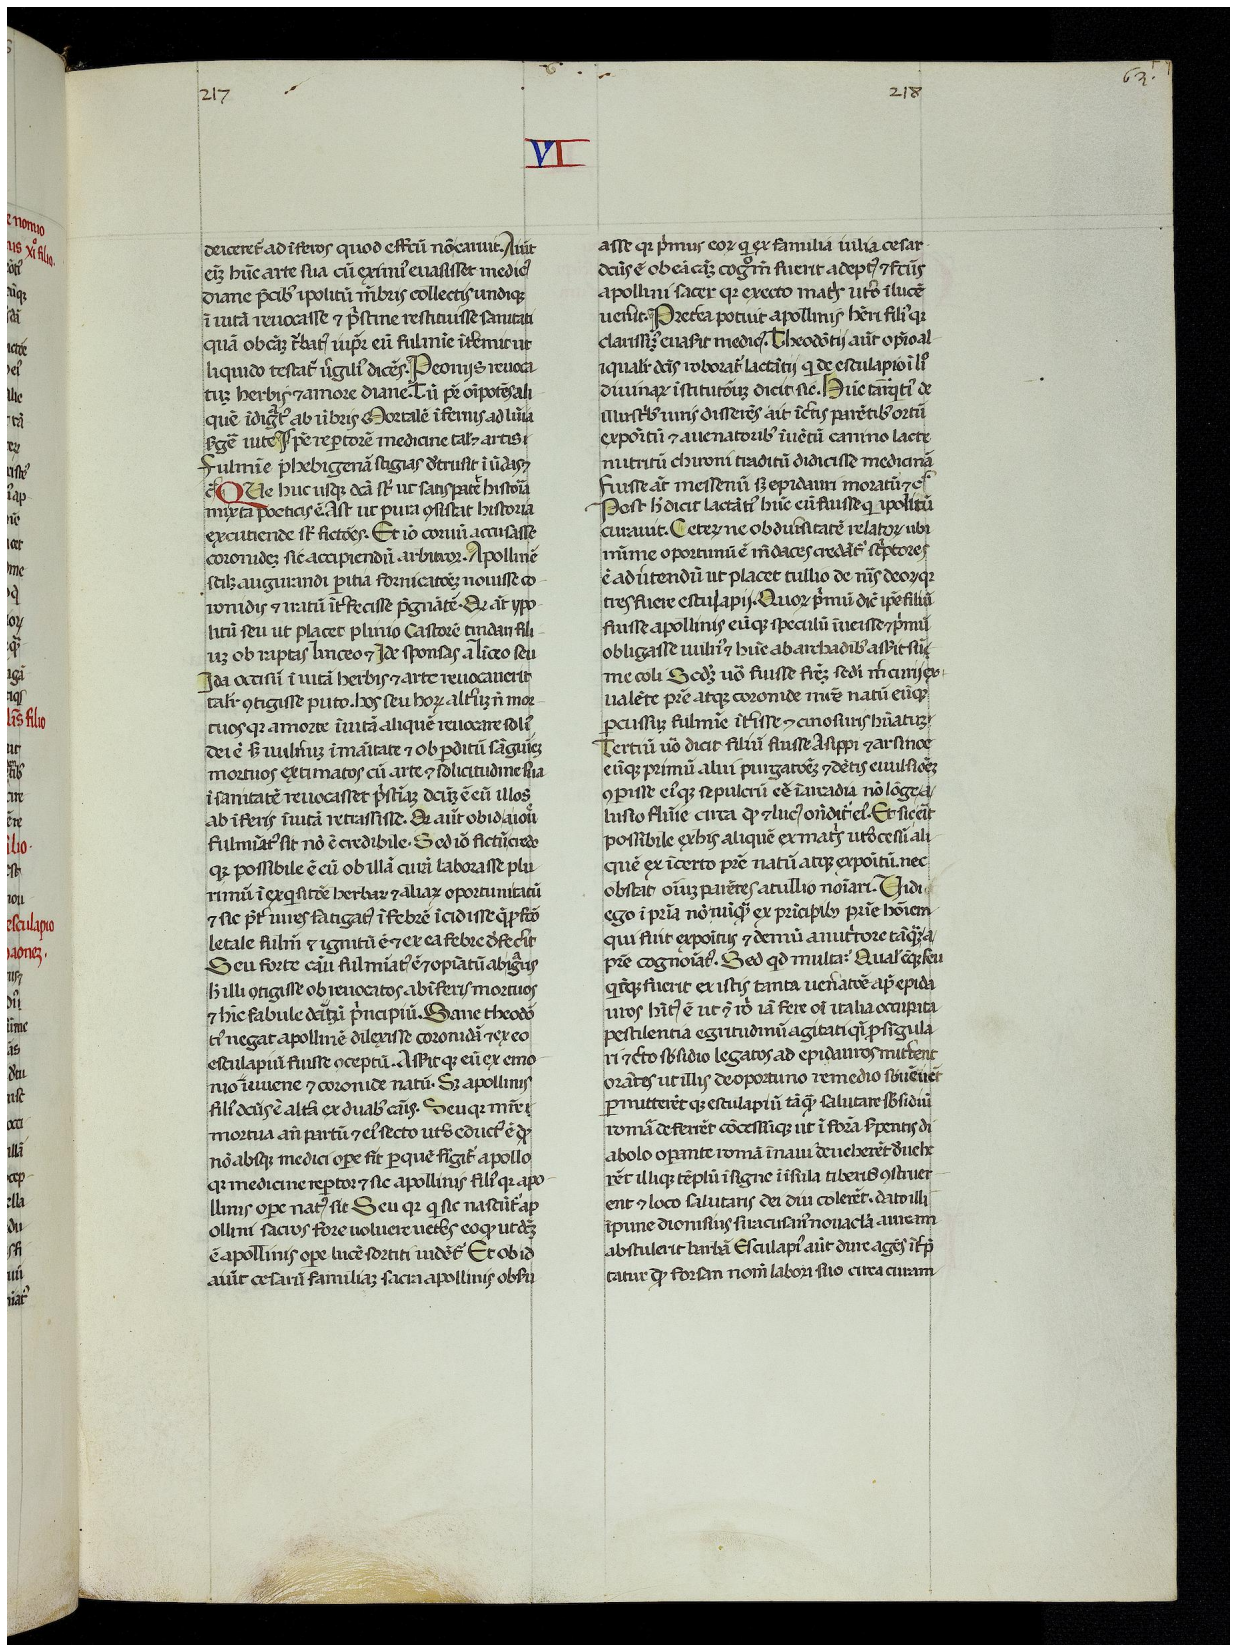 217
218
62
VI
deiceret᷑ ad īferos quod effc̄tū nō caruit. Aiūt
eiꝫ hūc arte sua cū eximi᷒ euasisset medic᷒
diane p̄cib᷒ ipolitū mēbris collectis undiqꝫ
ī uitā reuocasse ⁊ p̄stine restituisse sanitati
quā ob cāꝫ
liquido testat᷑ u̓gili᷒ dicēs. Peonijs reuoca
tuꝫ herbis ⁊ amore diane. Tū pr̄ oīpotēs ali
quē īdigt᷒ ab ūbris Mortalē īfernis ad lūīa
Sg̓ē uite Ipē reptorē medicine tal᷒ ⁊ artis
Fulmīe phebigenā stigias dt̓rusit ī ūdas ⁊
c̄ Que huc usqꝫ dc̄ā st̄ ut satis patꝫ historia
mixta poeticis ē. Ast ut pura ꝯsistat historia
excutiende st̄ fictōes. Et iō coruū accusasse
coronideꝫ sic accipiendū arbitror. Apollinē
scilꝫ augurandi pitia fornicatōeꝫ nouisse co-
ronidis ⁊ iratū īt̓fecisse p̄gnātē. Qꝛ āt ypo-
litū seu ut placet plinio Castorē tindari fili-
uꝫ ob raptas linceo ⁊ Ide sponsas a liceo seu
Ida occisū ī uitā herbis ⁊ arte reuocauerit
talit̓ ꝯtigisse puto. hos seu hoꝝ alt̓uꝫ nō mor-
tuos qꝛ a morte ī uitā aliquē reuocare soli᷒
dei ē sꝫ ī ⁊ ob pditū sāguineꝫ
mortuos extimatos cū arte ⁊ solicitudine sua
ī sanitatē reuocasset p̄stinā dictuꝫ ē eū illos
ab īferis ī uitā retraxisse. Qꝛ aūt ob id a ioue
fulmiāt᷒ sit nō ē credibile. Sed iō fictū credo
qꝛ possibile ē eū ob illā curā laborasse plu
rimū ī exqsitōe herbaꝝ ⁊ aliaꝝ oportunitatū
⁊ sic pt̄ uires fatigat᷒ ī febrē īcidisse
letale fulm̄ ⁊ ignitū ē ⁊ ex ea febre dfecit
Seu forte casu fulmiāt᷒ ē ⁊ opiatū ab ignaris
h̄ illi ꝯtigisse ob reuocatos ab īferis mortuos
⁊ hīc fabule datū p̄ncipiū. Sane theodō
ti᷒ negat apollinē dilexisse coronidā ⁊ ex eo
esculapiū fuisse ꝯceptū. Asrit qꝫ eū ex emo-
nio iuuene ⁊ coronide natū. Sꝫ apollinis
fili᷒ dc̄us ē alt̓a ex duab᷒ cāis. Seu qꝛ mr̄e
mortua an̄ partū ⁊ ei᷒ secto ut̓o educt᷒ ē qđ
nō absqꝫ medici ope fit p quē figit᷑ apollo
qꝛ medicine reptor ⁊ sic apollinis fili᷒ qꝛ apo-
llinis ope nat᷒ sit Seu qꝛ q sic nascūt᷑ ap
ollini sacros fore uoluere uetēs eo qꝫ ut dꝫ
ē apollinis ope lucē sortiti uidēt᷑ Et ob id
aiūt cesarū familiaꝫ sacra apollinis obsu
asse qꝛ p̄mus eoꝝ q ex familia iulia cesar
dc̄us ē ob eā cāꝫ cogꝰm fuerit adept᷒ ⁊ fc̄us
apollini sacer qꝛ execto mat̓s ut̓o ī lucē
uenit. Pret̓ea potuit apollinis hēri fili᷒ qꝛ
clarissi᷒ euasit medic᷒. Theodōtij aūt opīo al-
iqualit̓ dc̄is roborat᷑ lactātij q de esculapio ī li᷒
diuinaꝝ īstitutōuꝫ dicit sic. Hūc tarq̄ti᷒ de
illustrib᷒ uiris disserēs ait īcertis parētib᷒ ortū
expositū ⁊ a uenatorib᷒ īuētū canino lacte
nutritū chironi traditū didicisse medicinā
fuisse āt messenū sꝫ epidauri moratū ⁊ c̄
Post h̄ dicit lactāti᷒ hūc eū fuisse q ipolitū
curauit. Ceteꝝ ne ob diuisitatē relatoꝝ ubi
minime oportunū ē mēdaces credāt᷑ sc̓ptores
ē ad u̓tendū ut placet tullio de nāis deoꝝ qꝛ
tres fuere esculapij. Quoꝝ p̄mū dic̄ ipē filiū
fuisse apollinis eūqꝫ speculū īueisse ⁊ p̄mū
obligasse uuln᷒ ⁊ hūc ab archadib᷒ asrit sūē
me coli Scd̄ꝫ uo̓ fuisse frēꝫ scdi m̓curij ex
ualēte prē atqꝫ coronide mrē natū eūqꝫ
pcussuꝫ fulmīe īt̓isse ⁊ cinosuris hūatuꝫ
Tertiū uo̓ dicit filiū fuisse Asippi ⁊ arsinoe
eūqꝫ primū alui purgatōeꝫ ⁊ dētis euulsiōeꝫ
ꝯpisse ei᷒qꝫ sepulcrū eē ī arcadia nō lōge a
lusio flūie circa qđ ⁊ luc᷒ oñdit᷑ ei᷒. Et sic erit
possibile ex his aliquē ex mat̓s ut̓o cesū ali
quē ex īcerto prē natū atqꝫ expoītū. nec
obstat oīuꝫ parētes a tullio noīari. Vidi
ego ī pr̄ia nō nūq̄ ex pricipib᷒ pr̄ie hōiem
qui fuit expoītus ⁊ demū a nutt̓ore tāqꝫ a
prē cognoiāt᷒. Sed qđ multa: Qualicūqꝫ seu
qicūqꝫ fuerit ex istis tanta uenatōe ap̄ epida
uros hīt᷒ ē ut cū ro᷒ iā fere oī italia occupata
pestilentia egritudinū agitati qi p sīgula-
ri ⁊ c̓to sb̄sidio legatos ad epidauros mitterent
orātes ut illis de oportuno remedio sb̄uenirēt
pmitterēt qꝫ esculapiū tāqꝫ salutare sb̄sidiū
romā deferrēt cōcessūqꝫ ut ī forā spentis di
abolo opante romā ī naui deueherēt d̓uehe
rēt illiqꝫ tēplū īsigne ī īsula tiberis ꝯstruer-
ent ⁊ loco salutaris dei diu colerēt. dato illi
īpune dionisius siracusan᷒ nouacla auream
abstulerit barbā Esculapi᷒ aūt dure agēs īt̓p̄
tatur qđ forsan nom̄ labori suo circa curam